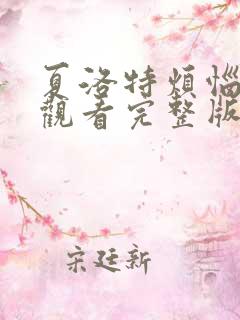 夏洛特煩惱
觀看完整版
宋廷新